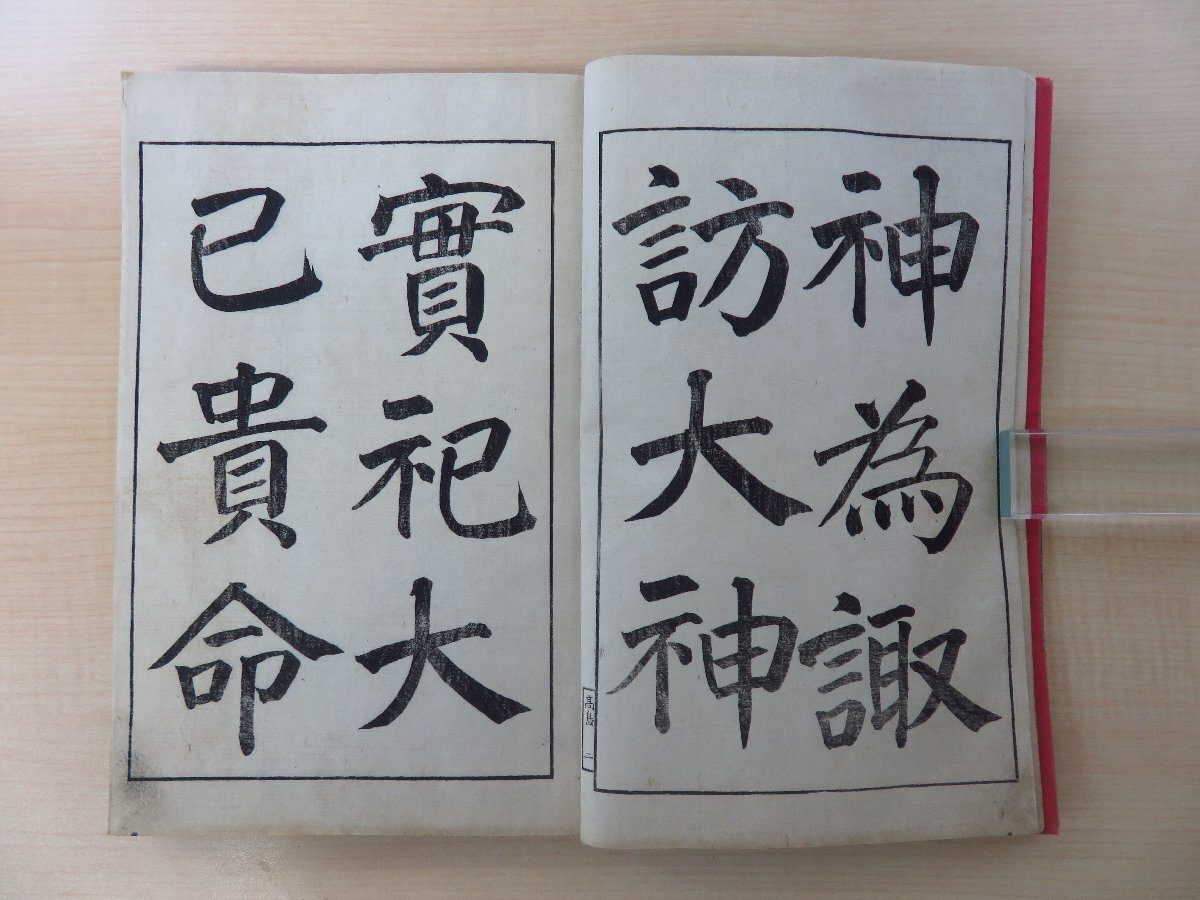 神為諏
訪大神
實祀大
已貴命
高島 二